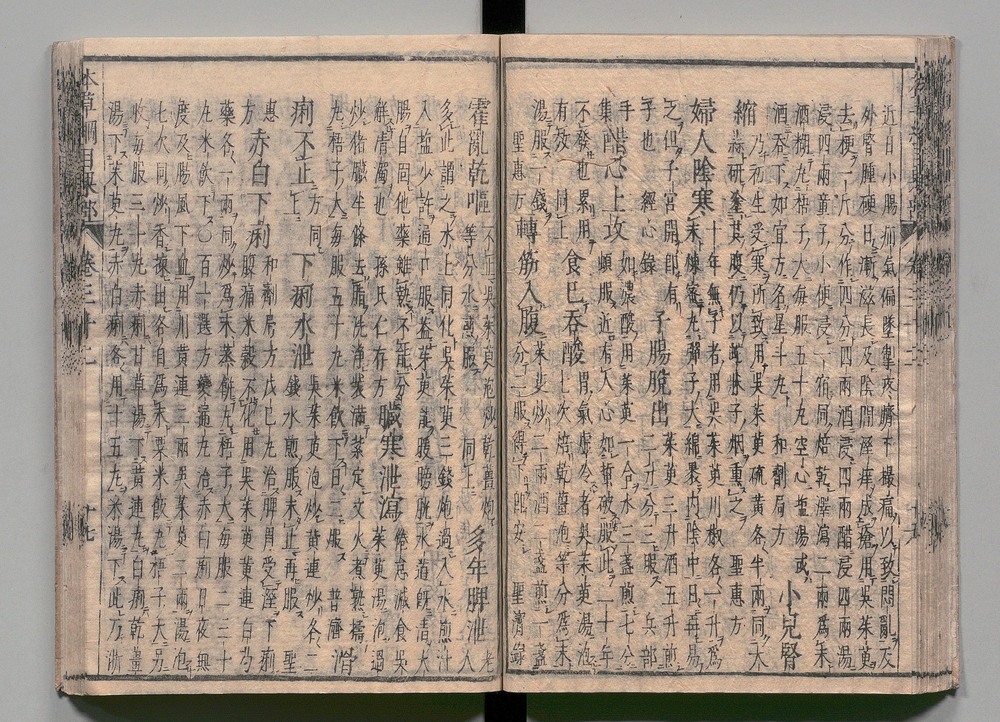 近日小腸疝氣偏墜牽疼臍下撮痛以致悶亂及
外腎腫硬日漸滋長及陰間溼痒成瘡用吳茱萸
去梗一斤分作四分四兩酒浸四兩醋浸四兩湯
浸四兩童子小便浸一宿同焙乾澤瀉二兩爲末
酒糊丸梧子大每服五十丸空心鹽湯或
酒吞下如宜方名星斗丸 和劑局方 小兒腎
縮 乃初生受寒所致用吳茱萸硫黃各半兩同大
蒜研塗其腹仍以蛇牀子烟熏之 聖惠方
婦人陰寒 十年無子者用吳茱萸川椒各一升爲
末煉蜜丸彈子大綿裹內陰中日再易
之但子宮開即有
子也 經心錄 子腸脫出 茱萸三升酒五升煎
二升分三服 兵部
手集 醋心上攻 如濃酸用茱萸一合水三盞煎七分
頓服近有人心如蜇破服此二十年
不發也累用
有效 同上 食已吞酸 胃氣虛冷者吳茱萸湯泡
七次焙乾薑炮等分爲末
湯服一錢
聖惠方 轉筋入腹 茱萸炒二兩酒二盞煎一盞
分二服得下即安 聖濟錄
霍亂乾嘔 不止吳茱萸泡炒乾薑炮
等分水煎服 同上 多年脾泄 老人
多此謂之水土同化吳茱萸三錢泡過入水煎汁
入鹽少許通口服蓋茱萸能暖膀胱水道既清大
腸自固他藥雖熱不能分
解清濁也 孫氏仁存方 臟寒泄瀉 倦怠減食吳
茱萸湯泡過
炒猪臟半條去脂洗淨裝滿紮定文火煮熟擣
丸梧子大每服五十丸米飲下日二服 普濟 滑
痢不止 方同
上 下痢水泄 吳茱萸泡炒黃連炒各二
錢水煎服未止再服 聖
惠
方 赤白下痢 和劑局方戊己丸治脾胃受溼下痢
腹痛米穀不化用吳茱萸黃連白芍
藥各一兩同炒爲末蒸餅丸梧子大每服二三十
丸米飲下○百一選方變通丸治赤白痢日夜無
度及腸風下血用川黃連二兩吳茱萸二兩湯泡
七次同炒香揀出各自爲末粟米飯丸梧子大另
收每服三十丸赤痢甘草湯下黃連丸白痢乾薑
湯下茱萸丸赤白痢各用十五丸米湯下此乃浙
本草綱目果部 卷三十二 十七